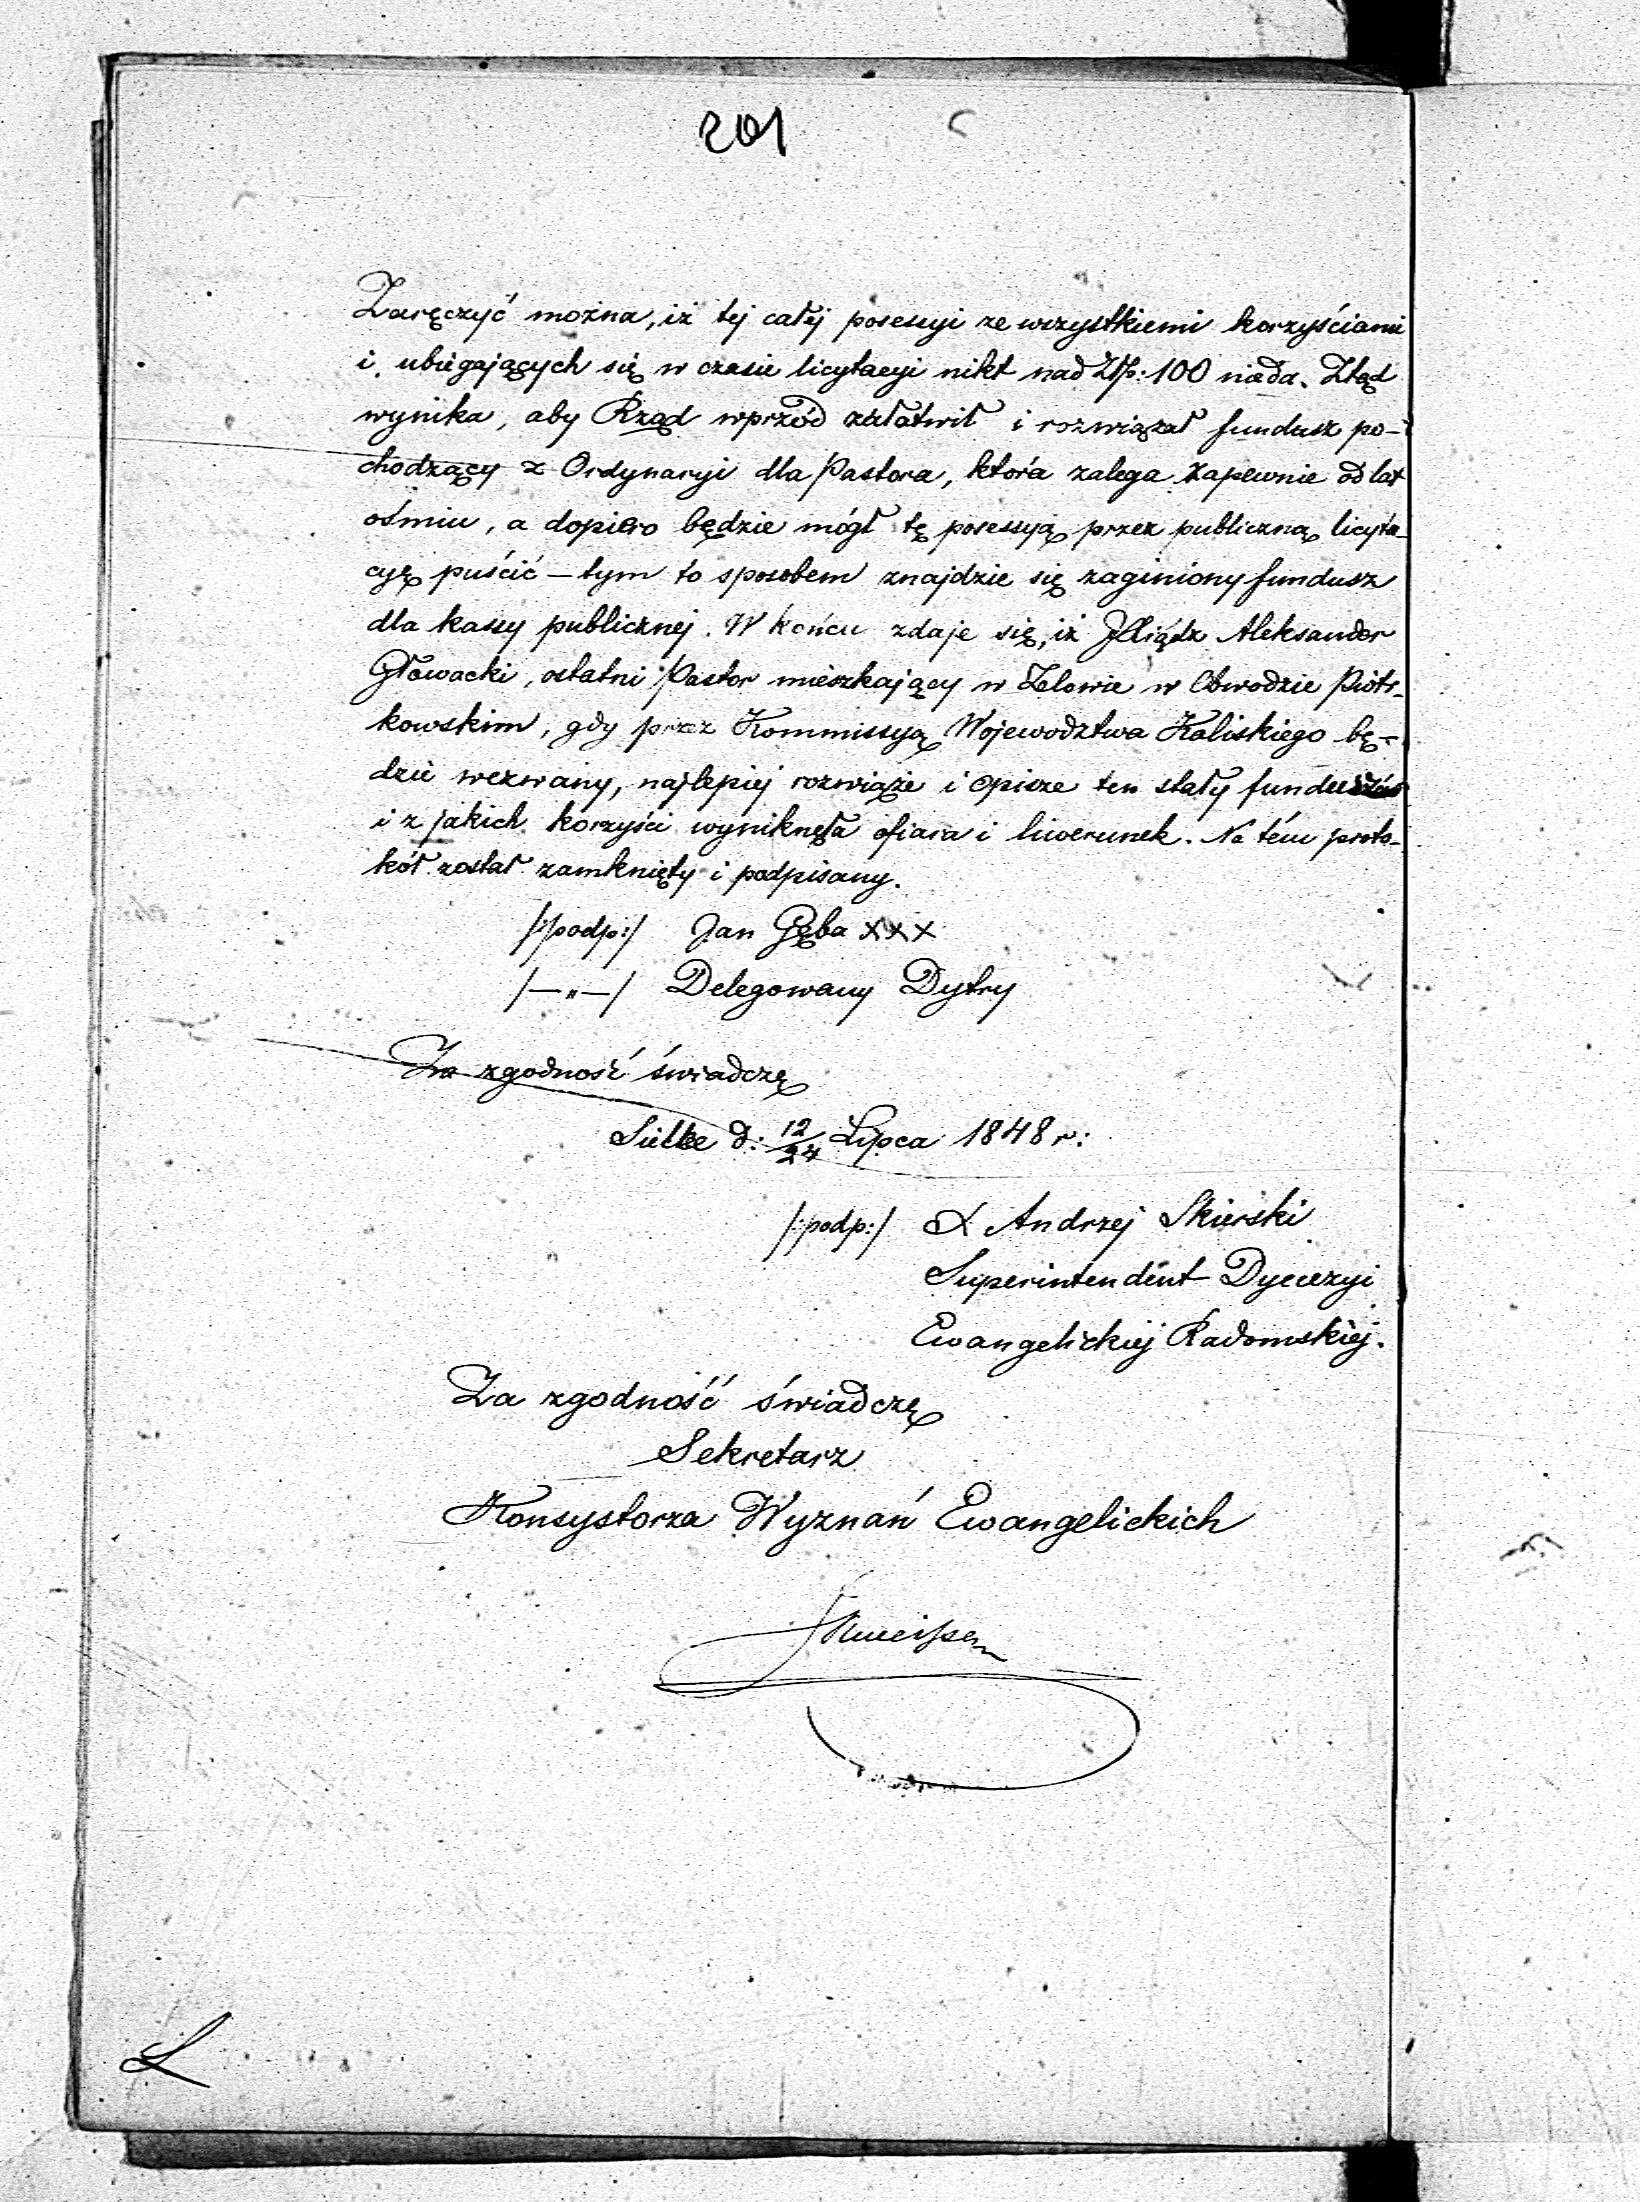 201
Zaręczyć można, iż tej całej posessyi ze wszystkiemi korzyściami
i ubiegających się w czasie licytacyi nikt nad Złp: 100 nieda. Ztąd
wynika, aby Rząd wprzód załatwił i rozwiązał fundusz po-
chodzący z Ordynaryi dla Pastora, która zalega zapewnie od lat
ośmiu, a dopiero będzie mógł tę posessyą przez publiczną licyta-
cyę puścić — tym to sposobem znajdzie się zaginiony fundusz
dla kassy publicznej. W końcu zdaje się, iż Aleksander
Głowacki, ostatni Pastor mieszkający w Zelowie w Obwodzie Piotr-
kowskim, gdy przez Kommissyą Województwa Kaliskiego bę-
dzie wezwany, najlepiej rozwiąże i opisze ten stały fundusz
i z jakich korzyści wyniknęła ofiara i liwerunek. Na tém proto-
kół został zamknięty i podpisany.
/:podp:/ Jan Gęba XXX
/—„—/ Delegowany Dytry
Za zgodność świadczę
Sielec d: 12/24 Lipca 1848 r:
/:podp:/ X Andrzej Skierski
Superintendent Dyecezyi
Ewangelickiej Radomskiej.
Za zgodność świadczę
Sekretarz
Konsystorza Wyznań Ewangelickich